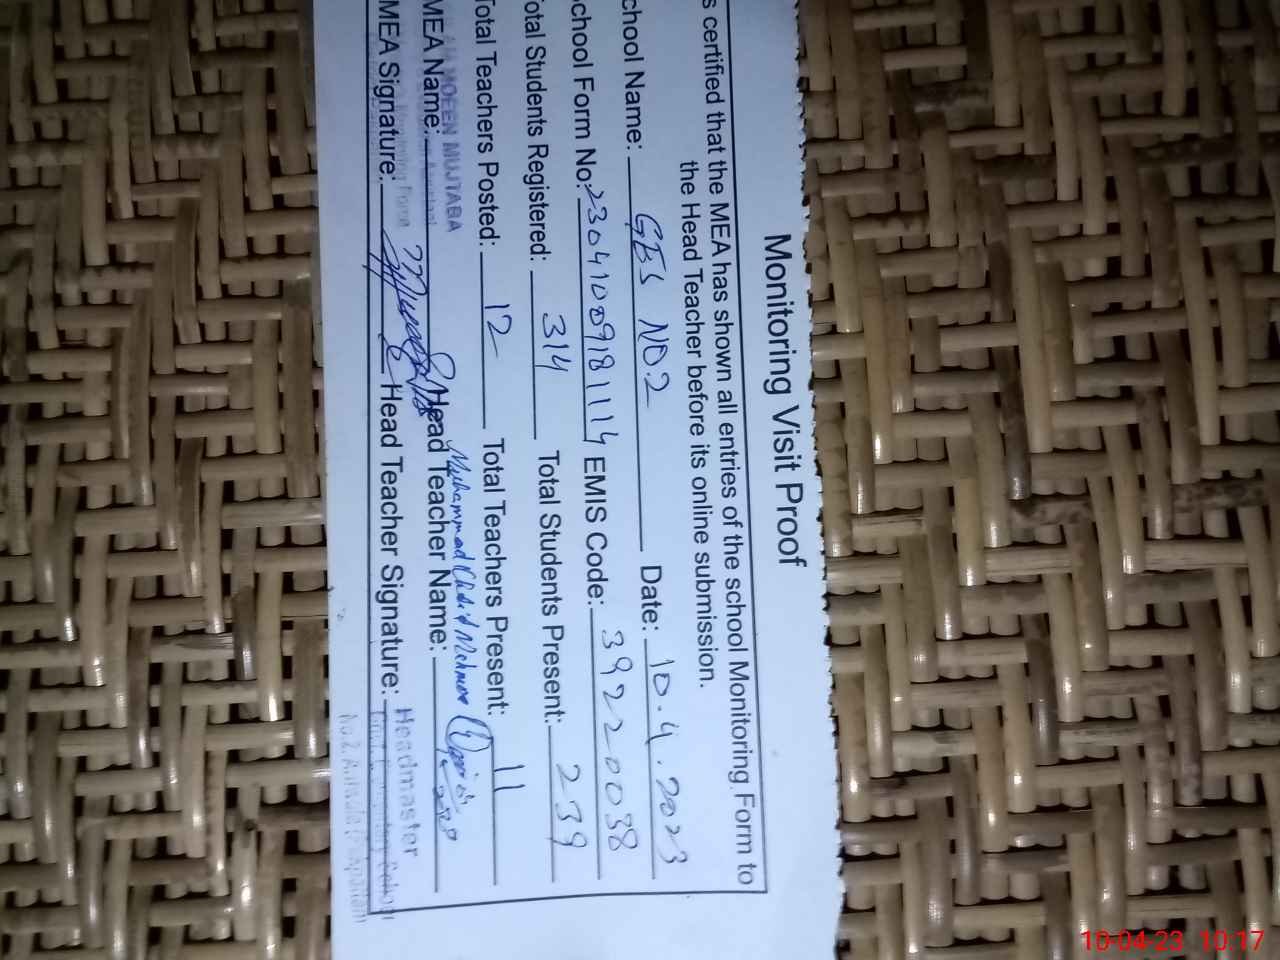 Monitoring Visit Proof
s certified that the MEA has shown all entries of the school Monitoring Form to
the Head Teacher before its online submission.
chool Name: GES NO.2 Date: 10.4.2023
chool Form No: 23041009181114 EMIS Code: 39220038
otal Students Registered: 314 Total Students Present: 239
Total Teachers Posted: 12 Total Teachers Present: 11
MOEEN MUJTABA
MEA Name: Head Teacher Name: Muhammad
MEA Signature: Head Teacher Signature:
Headmaster
No.2,
10-04-23 10:17